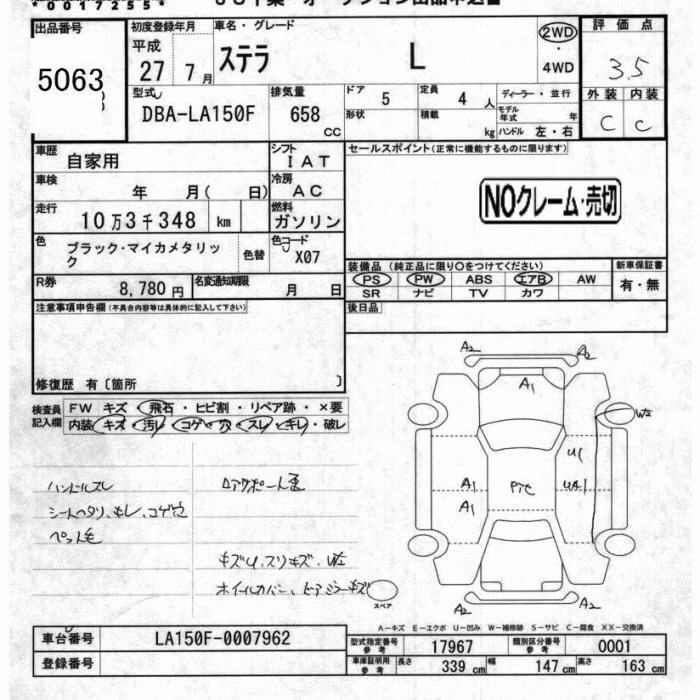 *00172554*
出品番号
5063
初度登録年月
平成
27 7月
車名・グレード
ステラ L
2WD
・
4WD
評価点
3.5
外装 内装
C C
型式
DBA-LA150F
排気量
658
CC
ドア
5
定員
4 人
形状
積載
kg
ディーラー・並行
モデル年式 年
ハンドル 左・右
車歴
自家用
シフト
IAT
車検
年 月( 日)
冷房
AC
走行
10万3千348 km
燃料
ガソリン
色
ブラック・マイカメタリッ
ク
色替
色コード
X07
R券
8,780円
名変通知期限
月 日
セールスポイント(正常に機能するものに限ります)
NOクレーム・売切
装備品(純正品に限り〇をつけてください)
PS PW ABS エアB AW
SR ナビ TV カワ
新車保証書
有・無
後日品
注意事項申告欄(不具合内容等は具体的に記入して下さい)
修復歴 有〔箇所 〕
検査員
記入欄
FW キズ・飛石・ヒビ割・リペア跡・×要
内装・キズ・汚レ・コゲ・穴・スレ・キレ・破レ
ハンドルスレ
シートヘタリ、キレ、コゲ穴
ペット毛
キズU、スリキズ、W2
A2 A2
A1
W2
U1
A1
A1
A2 A2
スペア
A-キズ E-エクボ U-凹み W-補修跡 S-サビ C-腐食 XX-交換済
車台番号
LA150F-0007962
登録番号
型式指定番号
参考
17967
類別区分番号
参考
0001
車庫証明用
参考
長さ
339 cm
幅
147 cm
高さ
163 cm